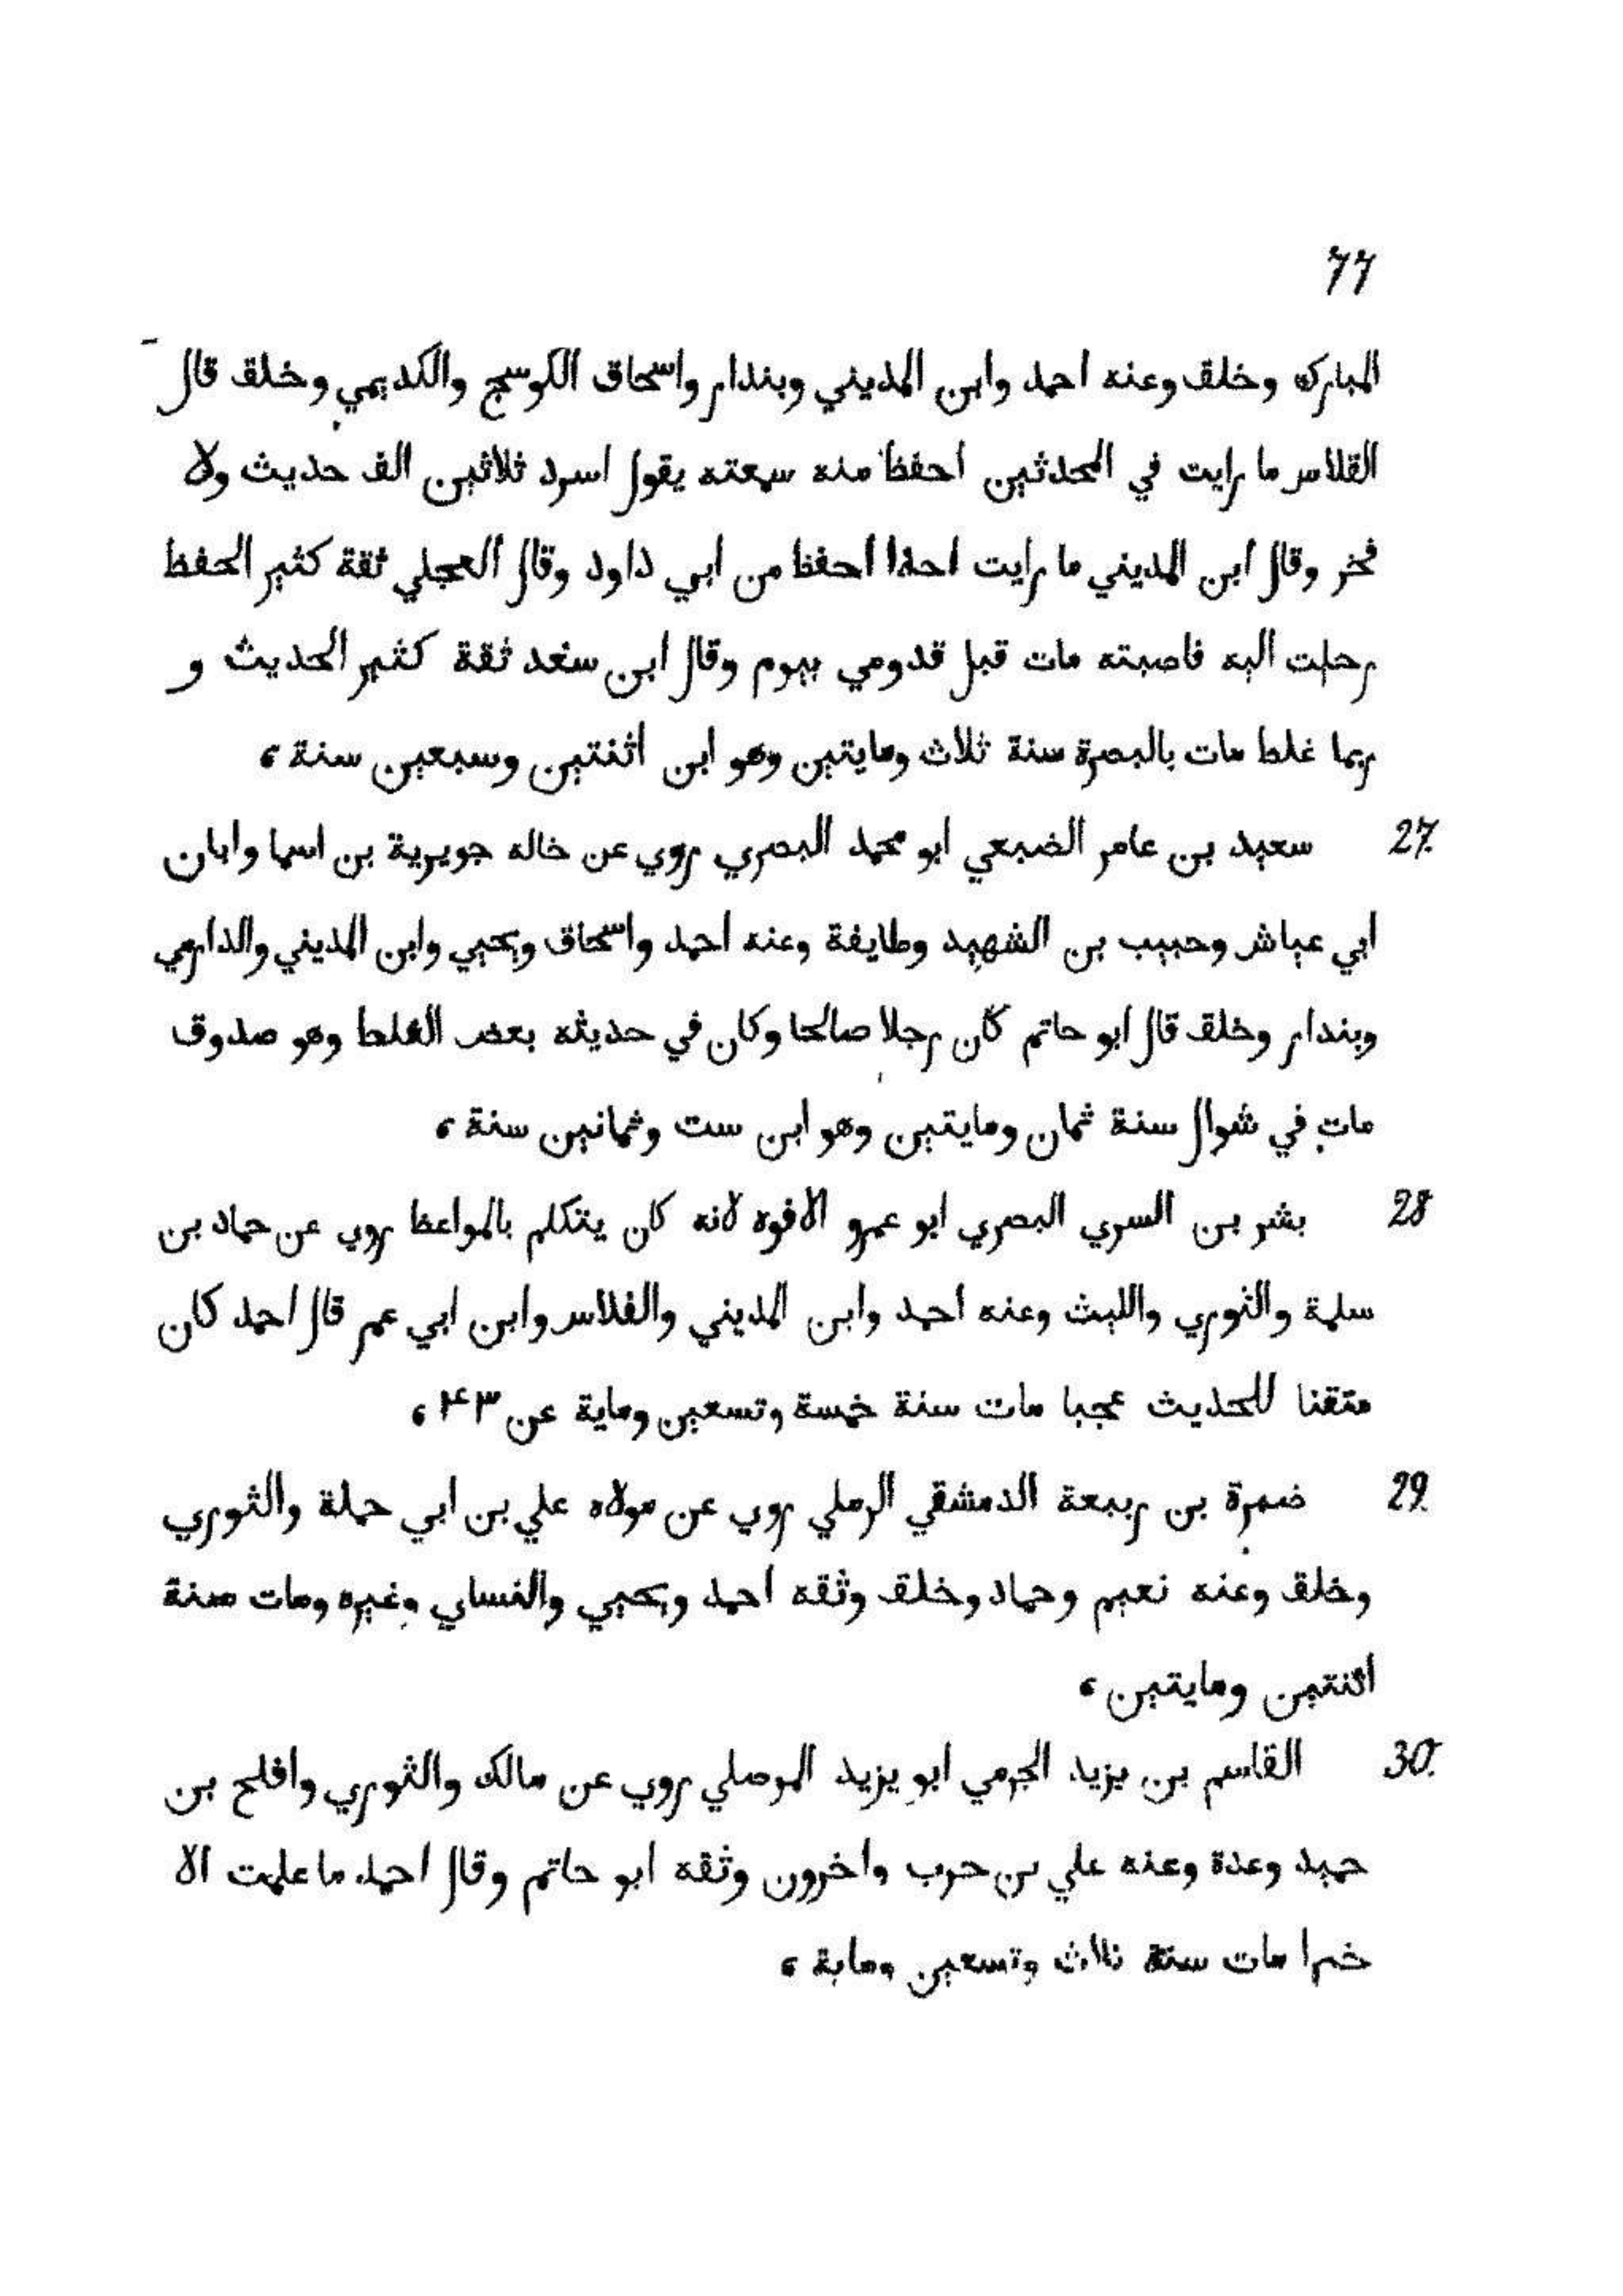 77
المبارك وخلق وعنه احمد وابن المديني وبندار واسحاق الكوسج والكديمي وخلق قال
القلاس ما رايت في المحدثين احفظ منه سمعته يقول اسرد ثلاثين الف حديث ولا
فخر وقال ابن المديني ما رايت احدا احفظ من ابي داود وقال العجلي ثقة كثير الحفظ
رحلت اليه فاصبته مات قبل قدومي بيوم وقال ابن سعد ثقة كثير الحديث و
ربما غلط مات بالبصرة سنة ثلاث ومايتين وهو ابن اثنتين وسبعين سنة ،
27. سعيد بن عامر الضبعي ابو محمد البصري روي عن خاله جويرية بن اسما وابان
ابي عياش وحبيب بن الشهيد وطايفة وعنه احمد واسحاق ويحيي وابن المديني والدارمي
وبندار وخلق قال ابو حاتم كان رجلا صالحا وكان في حديثه بعض الغلط وهو صدوق
مات في شوال سنة ثمان ومايتين وهو ابن ست وثمانين سنة ،
28 بشر بن السري البصري ابو عمرو الافوه لانه كان يتكلم بالمواعظ روي عن حماد بن
سلمة والثوري والليث وعنه احمد وابن المديني والفلاس وابن ابي عمر قال احمد كان
متقنا للحديث عجبا مات سنة خمسة وتسعين وماية عن ۴۳ ،
29. ضمرة بن ربيعة الدمشقي الرملي روي عن مولاه علي بن ابي حملة والثوري
وخلق وعنه نعيم وحماد وخلق وثقه احمد ويحيي والنساي وغيره ومات سنة
اثنتين ومايتين ،
30. القاسم بن يزيد الجرمي ابو يزيد الموصلي روي عن مالك والثوري وافلح بن
حميد وعدة وعنه علي بن حرب واخرون وثقه ابو حاتم وقال احمد ما علمت الا
خيرا مات سنة ثلاث وتسعين وماية ،